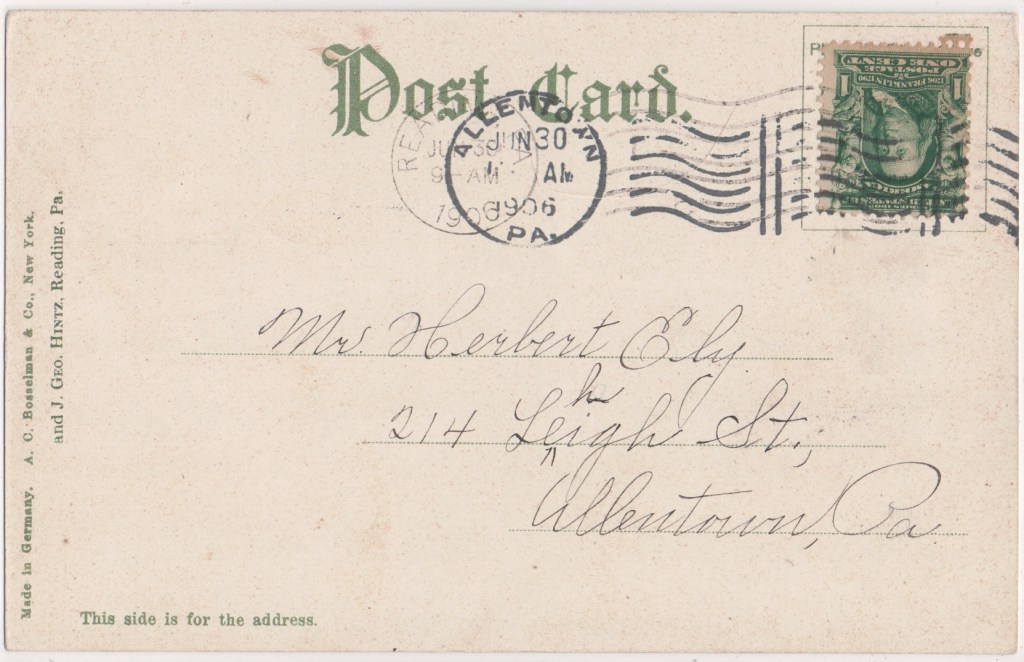 Post Card.
ONE CENT
POSTAGE
1706 FRANKLIN 1790
1 1
READING PA
JUN 30
9-AM
1906
ALLENTOWN
JUN 30
AM
1906
PA.
Mr. Herbert Ely
h
214 Leigh St.,
^
Allentown, Pa.
Made in Germany. A. C. Bosselman & Co., New York.
and J. Geo. Hintz, Reading, Pa.
This side is for the address.